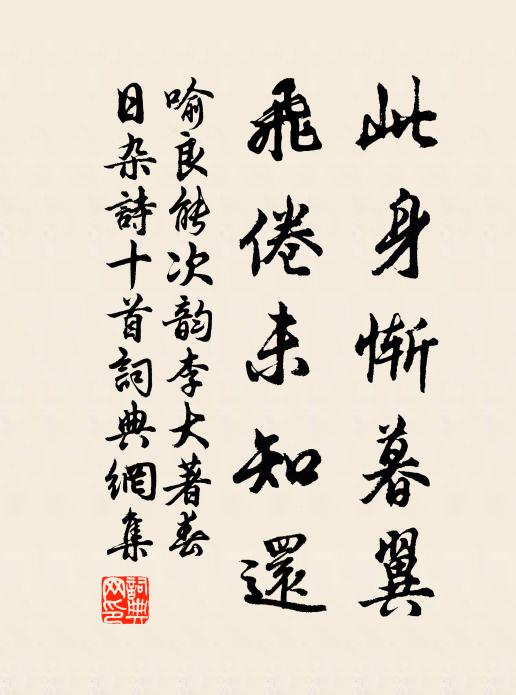 此身慚暮翼
飛倦未知還
喻良能次韵李大著春
日杂詩十首詞典網集
詞典网印